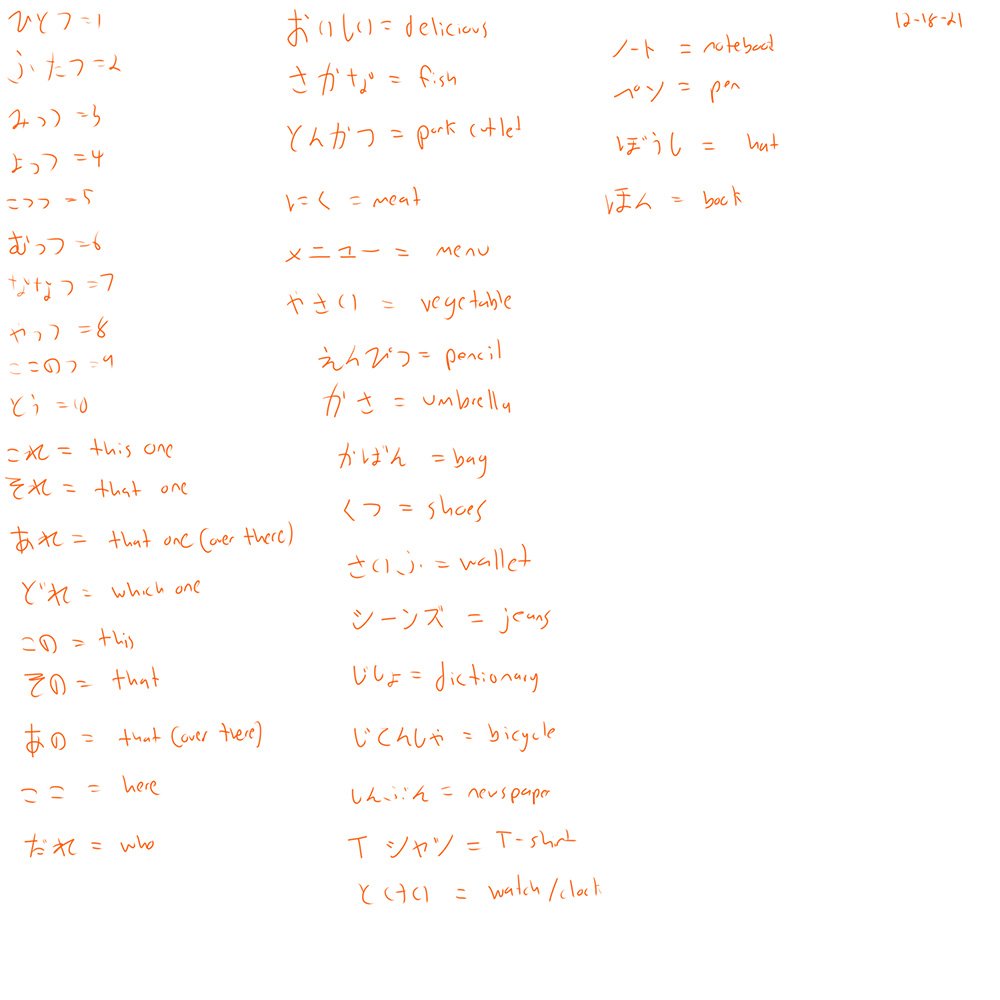 12-18-21
ひとつ=1
ふたつ=2
みっつ=3
よっつ=4
こつつ=5
むっつ=6
ななつ=7
やっつ=8
ここのつ=9
とう=10
これ= this one
それ= that one
あれ= that one (over there)
どれ= which one
この= this
その= that
あの= that (over there)
ここ= here
だれ= who
おいしい= delicious
さかな= fish
とんかつ= pork cutlet
にく= meat
メニュー= menu
やさい= vegetable
えんぴつ= pencil
かさ= umbrella
かばん= bag
くつ= shoes
さいふ= wallet
シーンズ= jeans
じしょ= dictionary
じてんしゃ= bicycle
しんぶん= newspaper
Tシャツ= T-shirt
とけい= watch/clock
ノート= notebook
ペン= pen
ぼうし= hat
ほん= book